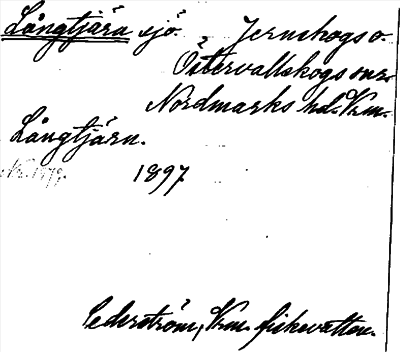 Långtjärn sjö. Jernskogs o.
Östervallskogs snr.
Nordmarks hd. Vrm.
Långtjärn.
1897
Cederström, Vrm. fiskevatten.